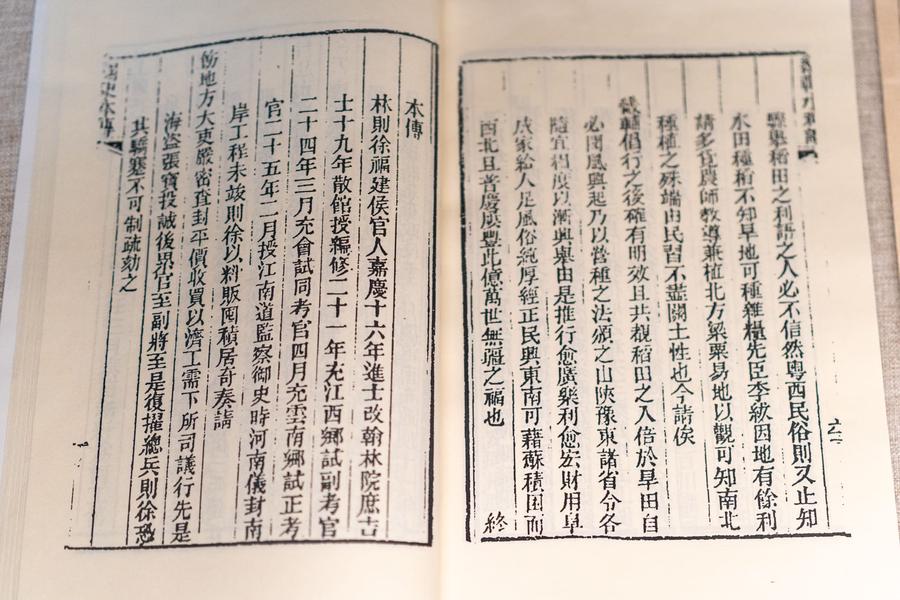 驟舉稻田之利語之人必不信然粵西民俗則又止知
水田種稻不知旱地可種雜糧先臣李紱因地有餘利
請多覓農師教導兼植北方粱粟易地以觀可知南北
種植之殊端由民習不盡關土性也今請俟
畿輔倡行之後確有明效且共覩稻田之入倍於旱田自
必聞風興起乃以營種之法頒之山陝豫東諸省令各
隨宜相度以漸興舉由是推行愈廣樂利愈宏財用阜
成家給人足風俗純厚經正民興東南可藉蘇積困而
西北且普慶屢豐此億萬世無疆之福也
終
本傳
林則徐福建侯官人嘉慶十六年進士改翰林院庶吉
士十九年散館授編修二十一年充江西鄉試副考官
二十四年三月充會試同考官四月充雲南鄉試正考
官二十五年二月授江南道監察御史時河南儀封南
岸工程未竣則徐以料販囤積居奇奏請
飭地方大吏嚴密查封平價收買以濟工需下所司議行先是
海盜張寶投誠後累官至副將至是復擢總兵則徐恐
其驕蹇不可制疏劾之